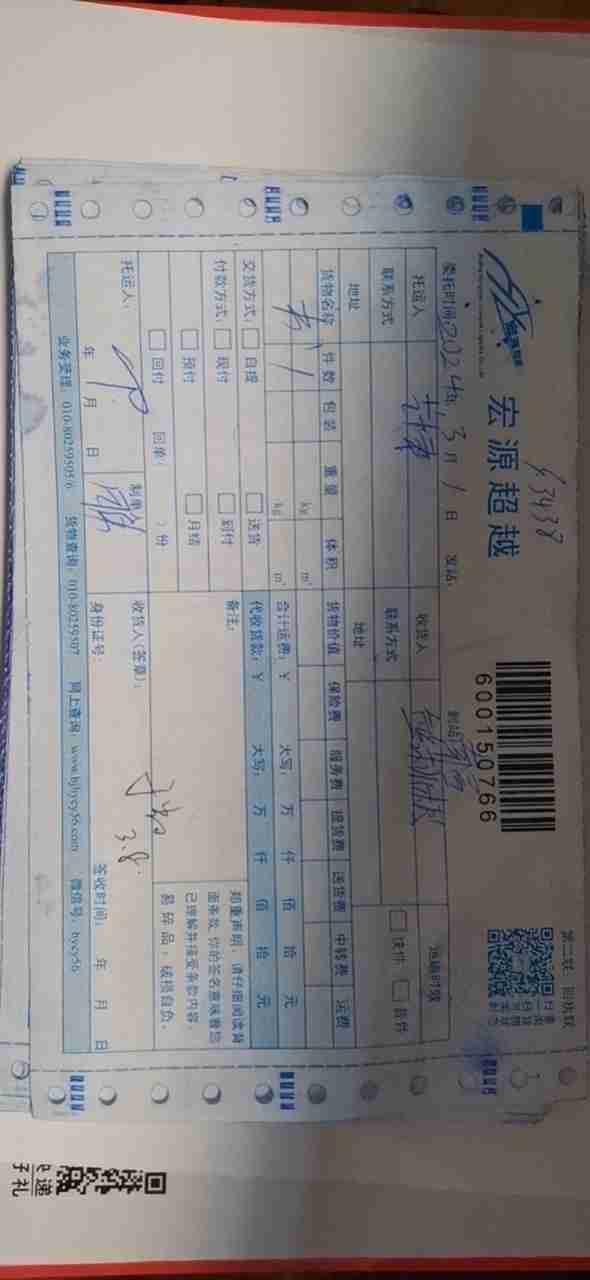 43438
宏源超越
600150766
第二联 回执联
委托时间2024年3月1日 发站: 到站:
托运人 收货人 运输时效
联系方式 联系方式 快件 普件
地址 地址
货物名称 件数 包装 重量 体积 货物价值 保险费 服务费 提货费 送货费 中转费 运费
书 1 kg m³
kg m³ 合计运费:¥ 大写: 万 仟 佰 拾 元
交货方式: 自提 送货 代收货款:¥ 大写: 万 仟 佰 拾 元
付款方式: 现付 到付 备注:
预付 月结
回付 回单:( )份
郑重声明:请仔细阅读背
面条款,你的签名意味着您
已理解并接受条款内容。
易碎品,破损自负。
托运人: 制单: 收货人(签章):
3.8
年 月 日 身份证号: 签收时间: 年 月 日
业务受理:010-80259505/6 货物查询:010-80259507 网上查询:www.bjhycy56.com 微信号:hycy56